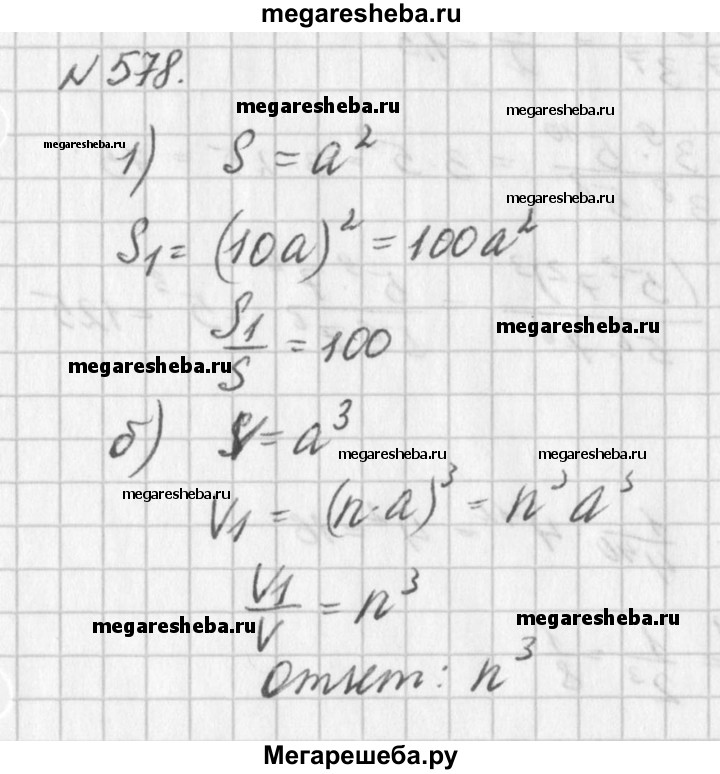 megaresheba.ru
N 578.
megaresheba.ru
megaresheba.ru
megaresheba.ru
1) S = a²
megaresheba.ru
S₁ = (10a)² = 100a²
megaresheba.ru
S₁/S = 100
megaresheba.ru
б) V = a³
megaresheba.ru megaresheba.ru
megaresheba.ru
V₁ = (n·a)³ = n³a³
V₁/V = n³
megaresheba.ru
megaresheba.ru
Ответ: n³
Мегарешеба.ру